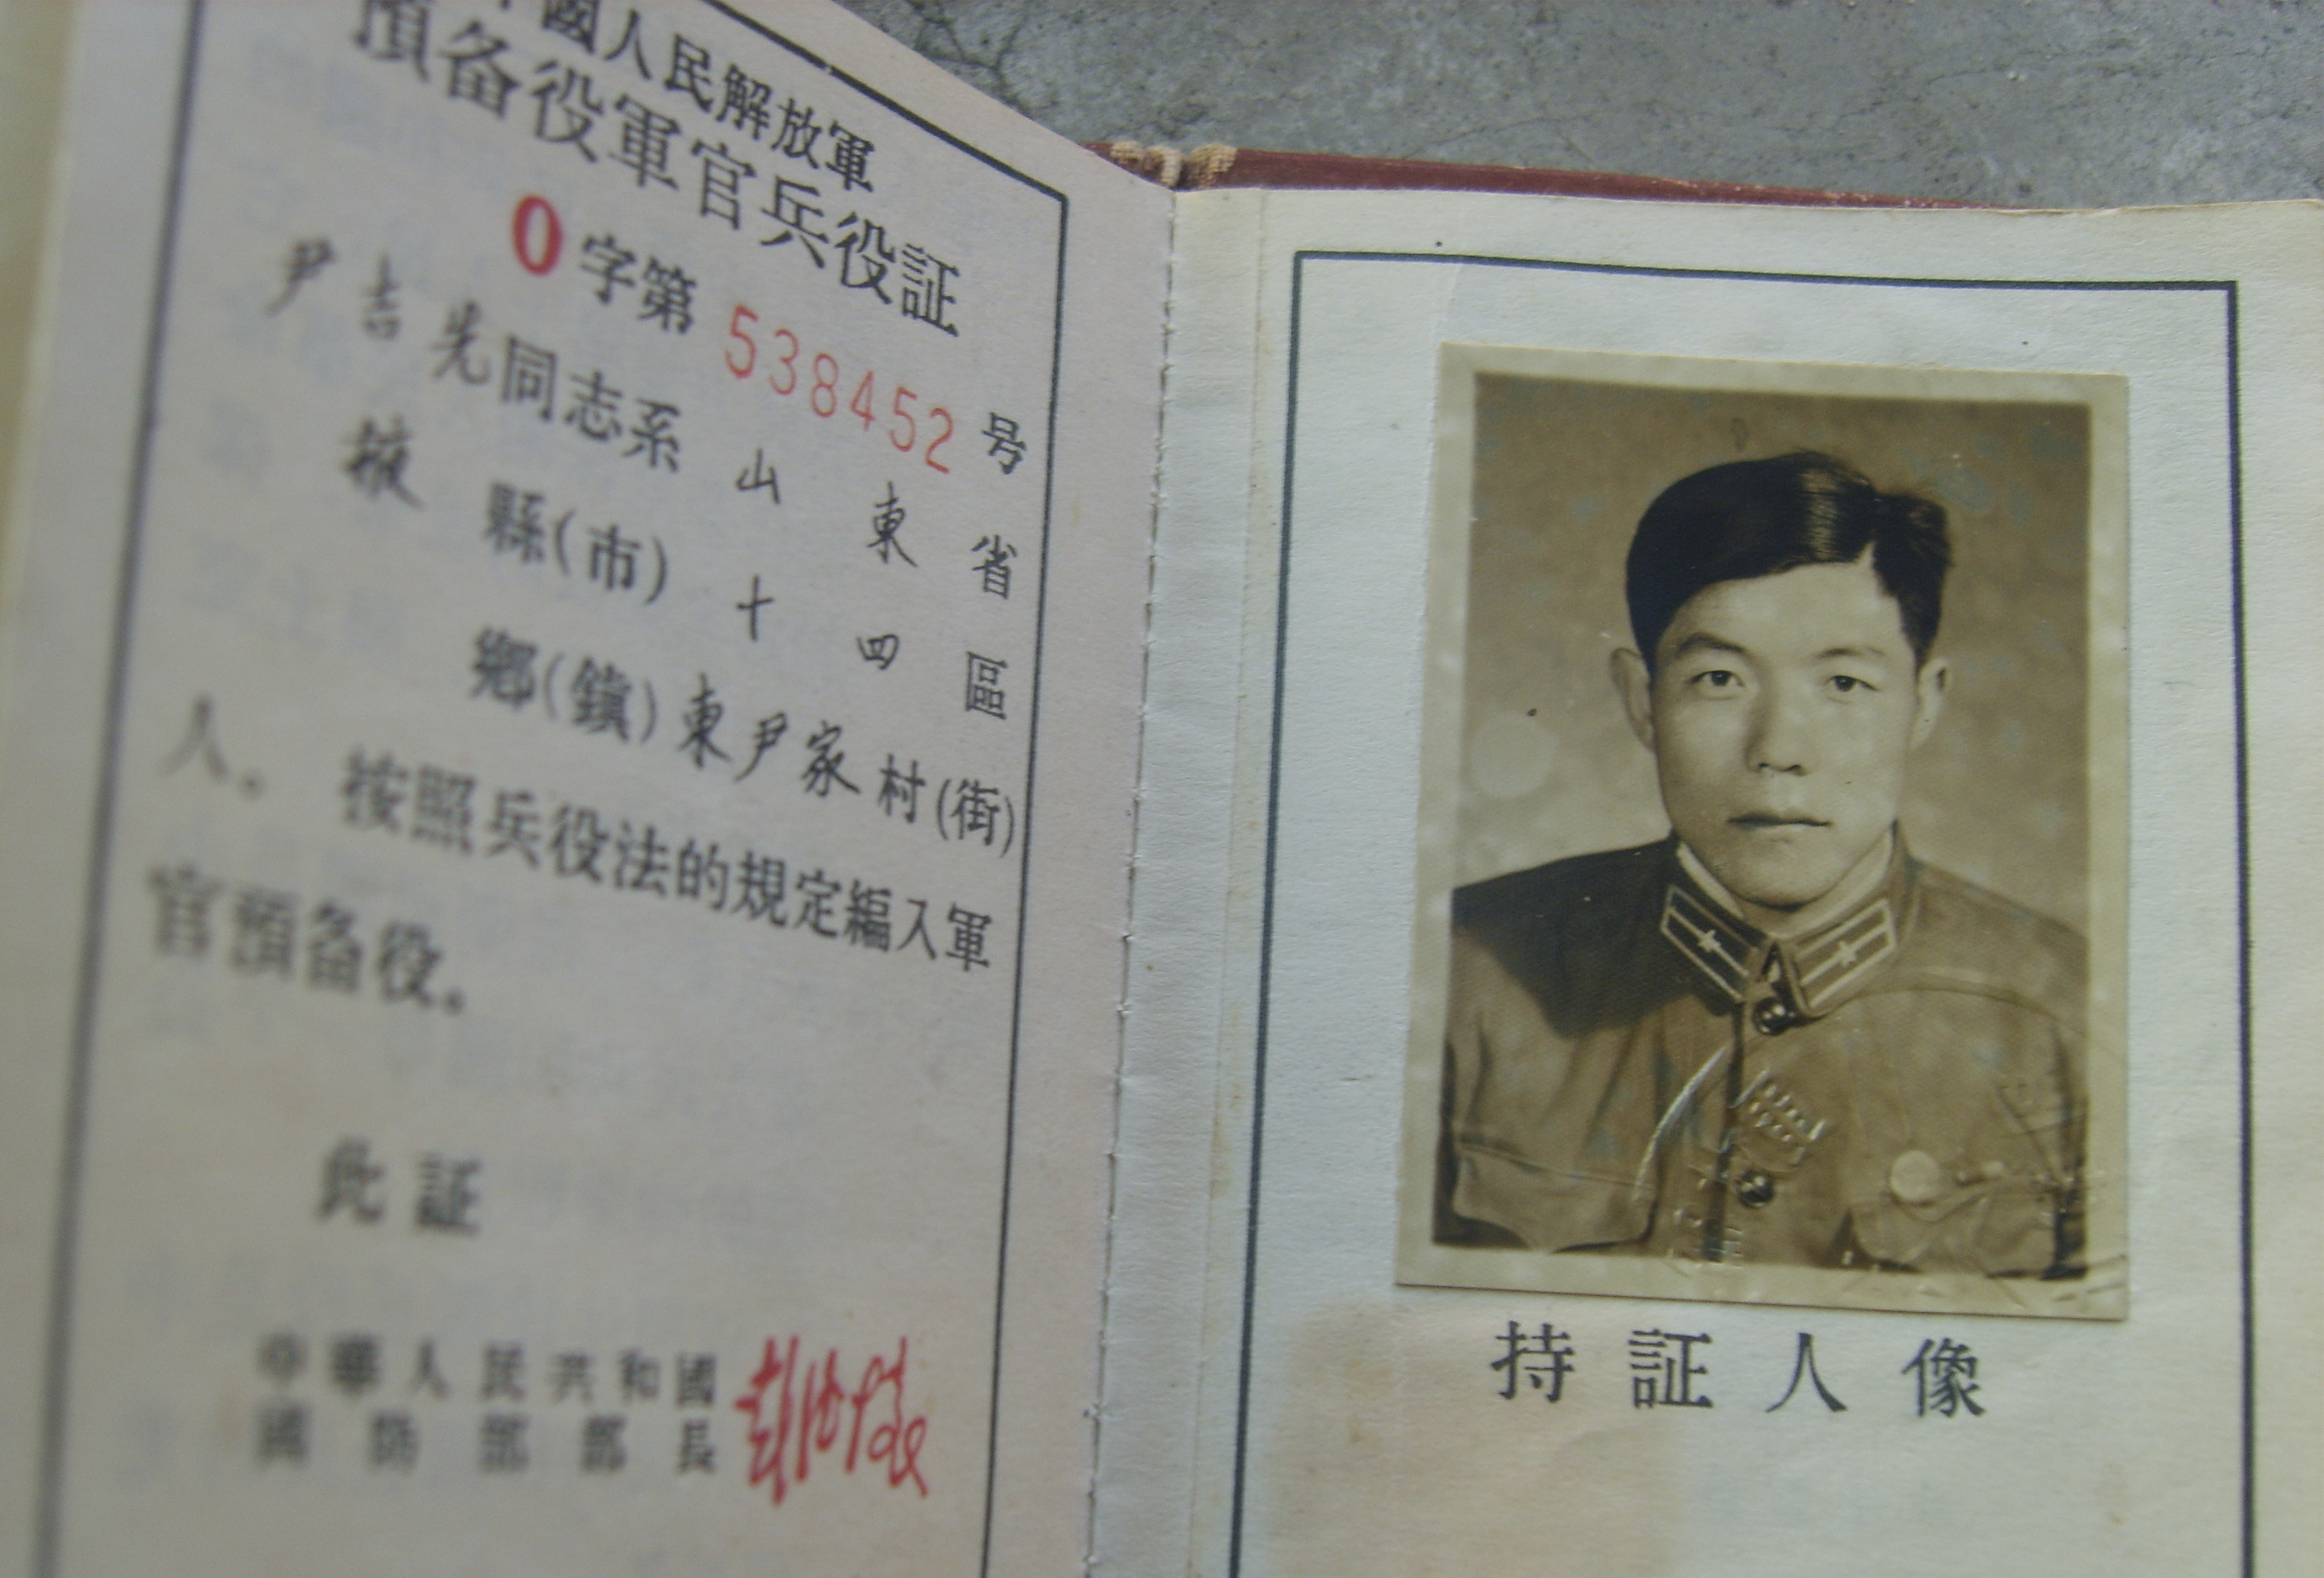 中國人民解放軍
預备役軍官兵役証
0字第538452号
尹吉先同志系山東省
掖縣(市)十四區
鄉(鎮)東尹家村(街)
人。按照兵役法的規定編入軍
官預备役。
此証
中華人民共和國
國防部部長
彭德懷
持証人像